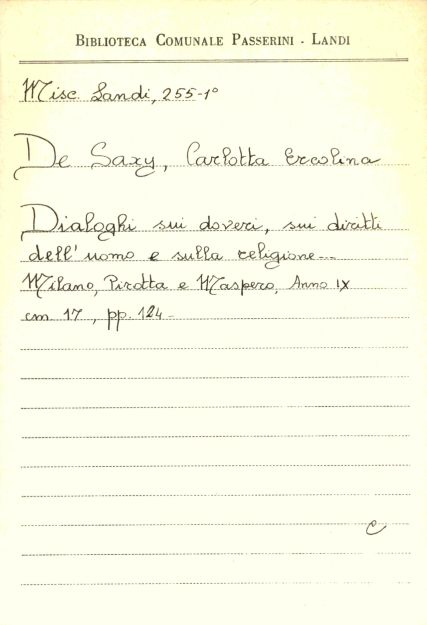 BIBLIOTECA COMUNALE PASSERINI - LANDI
Misc. Landi, 255-1°
De Saxy, Carlotta Ercolina
Dialoghi sui doveri, sui diritti
dell'uomo e sulla religione...
Milano, Pirotta e Maspero, Anno IX
cm 17, pp. 124-
C